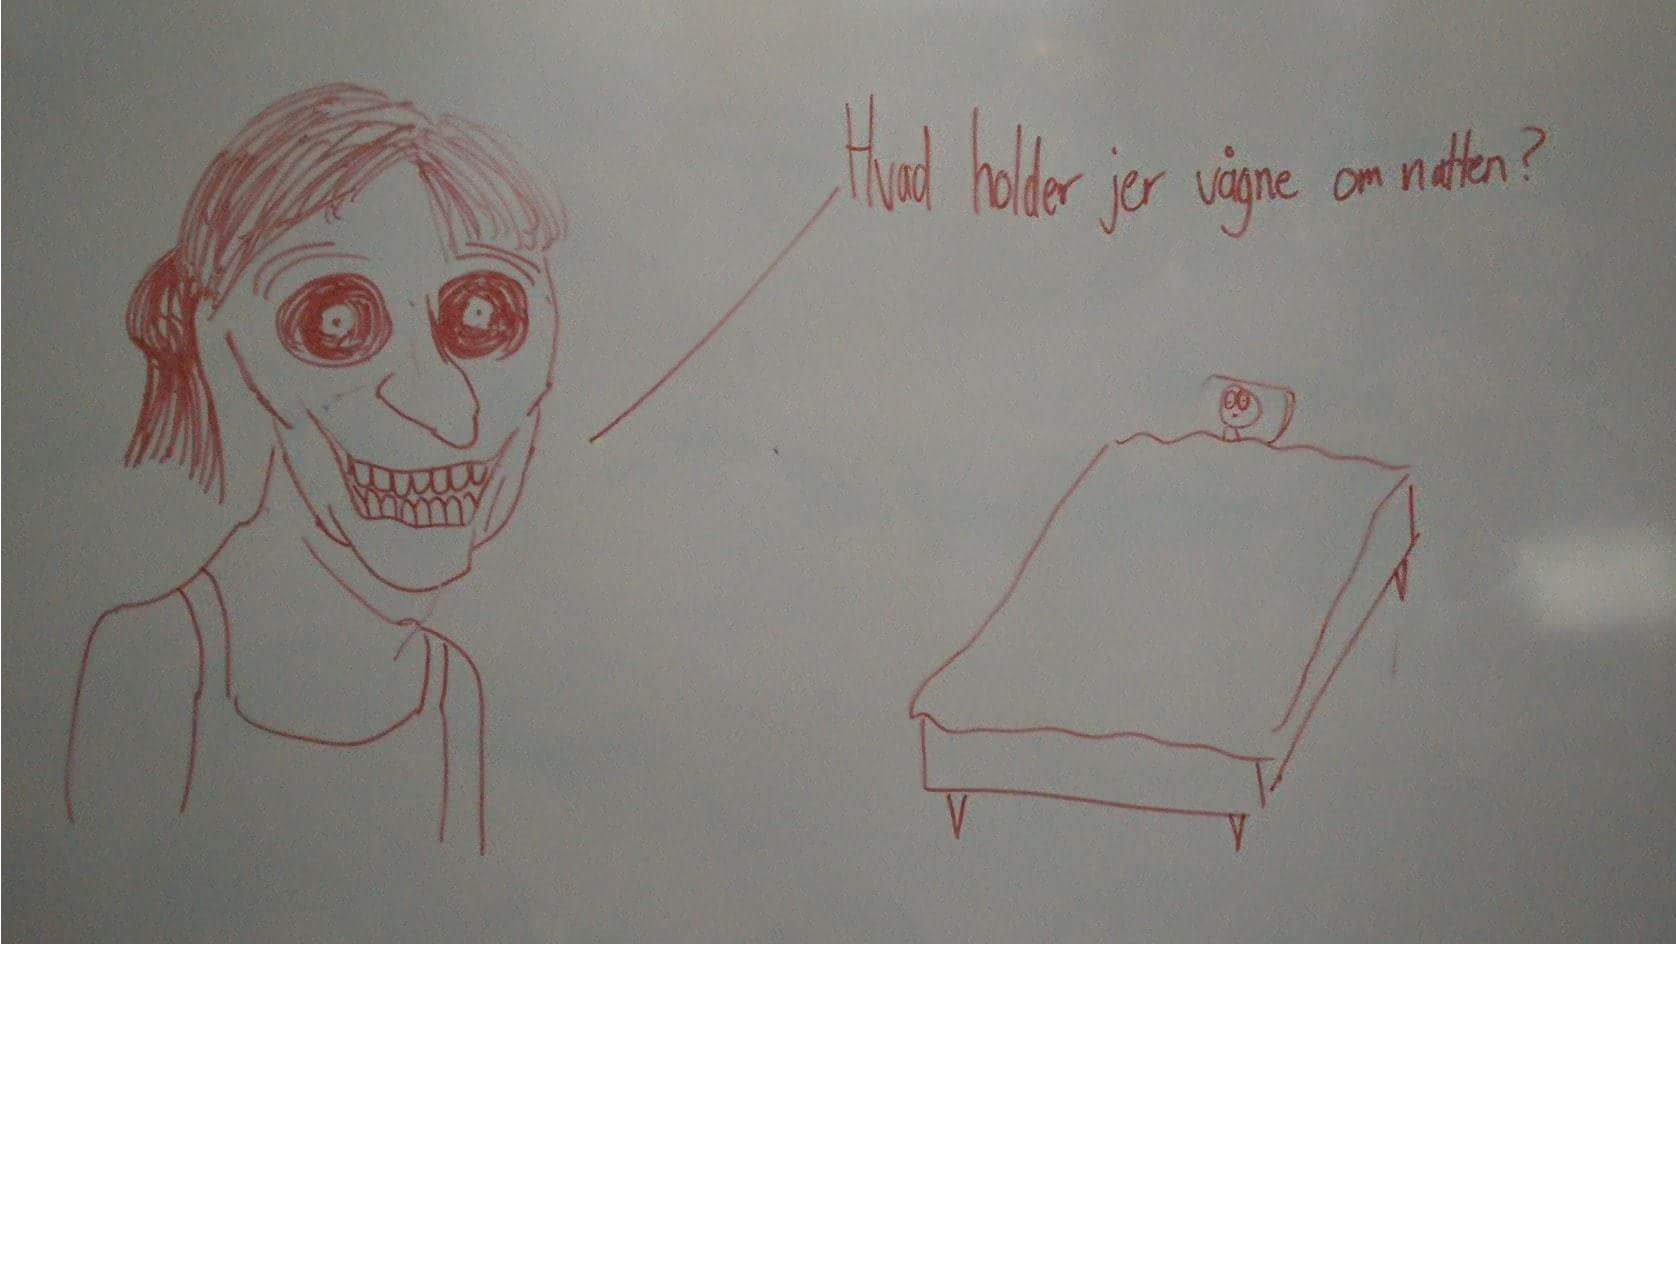 Hvad holder jer vågne om natten?